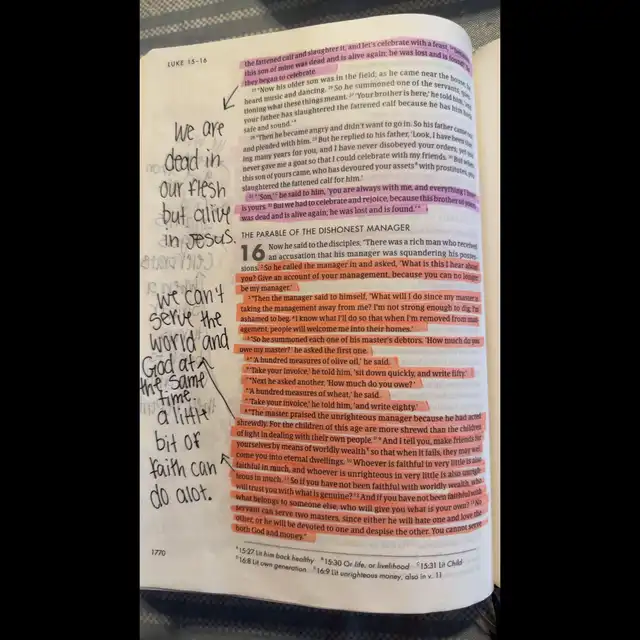 LUKE 15–16
the fattened calf and slaughter it, and let's celebrate with a feast, ²⁴because
this son of mine was dead and is alive again; he was lost and is found!' So
they began to celebrate.
²⁵ "Now his older son was in the field; as he came near the house, he
heard music and dancing. ²⁶ So he summoned one of the servants,
tioning what these things meant. ²⁷ 'Your brother is here,' he told him,
your father has slaughtered the fattened calf because he has him back
safe and sound.'ᴬ
²⁸ "Then he became angry and didn't want to go in. So his father came
and pleaded with him. ²⁹ But he replied to his father, 'Look, I have been
ing many years for you, and I have never disobeyed your orders, yet
never gave me a goat so that I could celebrate with my friends. ³⁰ But when
this son of yours came, who has devoured your assetsᴮ with prostitutes,
slaughtered the fattened calf for him.'
³¹ "'Son,'ᶜ he said to him, 'you are always with me, and everything I have
is yours. ³² But we had to celebrate and rejoice, because this brother of yours
was dead and is alive again; he was lost and is found.'"
THE PARABLE OF THE DISHONEST MANAGER
16 Now he said to the disciples, "There was a rich man who received
an accusation that his manager was squandering his posses-
sions. ² So he called the manager in and asked, 'What is this I hear about
you? Give an account of your management, because you can no longer
be my manager.'
³ "Then the manager said to himself, 'What will I do since my master is
taking the management away from me? I'm not strong enough to dig; I'm
ashamed to beg. ⁴ I know what I'll do so that when I'm removed from man-
agement, people will welcome me into their homes.'
⁵ "So he summoned each one of his master's debtors. 'How much do you
owe my master?' he asked the first one.
⁶ "'A hundred measures of olive oil,' he said.
"'Take your invoice,' he told him, 'sit down quickly, and write fifty.'
⁷ "Next he asked another, 'How much do you owe?'
"'A hundred measures of wheat,' he said.
"'Take your invoice,' he told him, 'and write eighty.'
⁸ "The master praised the unrighteous manager because he had acted
shrewdly. For the children of this age are more shrewd than the children
of light in dealing with their own people.ᴰ ⁹ And I tell you, make friends for
yourselves by means of worldly wealthᴱ so that when it fails, they may wel-
come you into eternal dwellings. ¹⁰ Whoever is faithful in very little is also
faithful in much, and whoever is unrighteous in very little is also unrigh-
teous in much. ¹¹ So if you have not been faithful with worldly wealth, who
will trust you with what is genuine? ¹² And if you have not been faithful with
what belongs to someone else, who will give you what is your own? ¹³ No
servant can serve two masters, since either he will hate one and love the
other, or he will be devoted to one and despise the other. You cannot serve
both God and money."
ᴬ 15:27 Lit him back healthy ᴮ 15:30 Or life, or livelihood ᶜ 15:31 Lit Child
ᴰ 16:8 Lit own generation ᴱ 16:9 Lit unrighteous money, also in v. 11
1770
we are
dead in
our flesh
but alive
in Jesus.
we can't
serve the
world and
God at
the same
time.
a little
bit of
faith can
do alot.